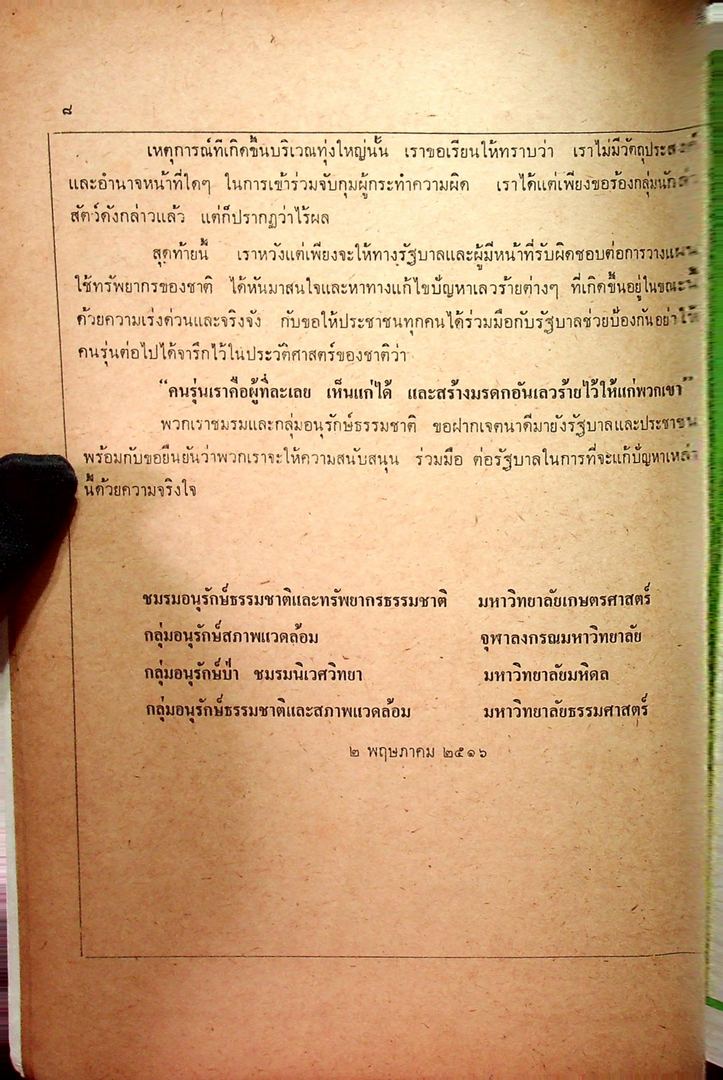 ๘
เหตุการณ์ที่เกิดขึ้นบริเวณทุ่งใหญ่นั้น เราขอเรียนให้ทราบว่า เราไม่มีวัตถุประสงค์
และอำนาจหน้าที่ใดๆ ในการเข้าร่วมจับกุมผู้กระทำความผิด เราได้แต่เพียงขอร้องกลุ่มนักล่า
สัตว์ดังกล่าวแล้ว แต่ก็ปรากฏว่าไร้ผล
สุดท้ายนี้ เราหวังแต่เพียงจะให้ทางรัฐบาลและผู้มีหน้าที่รับผิดชอบต่อการวางแผน
ใช้ทรัพยากรของชาติ ได้หันมาสนใจและหาทางแก้ไขปัญหาเลวร้ายต่างๆ ที่เกิดขึ้นอยู่ในขณะนี้
ด้วยความเร่งด่วนและจริงจัง กับขอให้ประชาชนทุกคนได้ร่วมมือกับรัฐบาลช่วยป้องกันอย่าให้
คนรุ่นต่อไปได้จารึกไว้ในประวัติศาสตร์ของชาติว่า
“คนรุ่นเราคือผู้ที่ละเลย เห็นแก่ได้ และสร้างมรดกอันเลวร้ายไว้ให้แก่พวกเขา”
พวกเราชมรมและกลุ่มอนุรักษ์ธรรมชาติ ขอฝากเจตนาดีมายังรัฐบาลและประชาชน
พร้อมกับขอยืนยันว่าพวกเราจะให้ความสนับสนุน ร่วมมือ ต่อรัฐบาลในการที่จะแก้ปัญหาเหล่า
นี้ด้วยความจริงใจ
ชมรมอนุรักษ์ธรรมชาติและทรัพยากรธรรมชาติ มหาวิทยาลัยเกษตรศาสตร์
กลุ่มอนุรักษ์สภาพแวดล้อม จุฬาลงกรณมหาวิทยาลัย
กลุ่มอนุรักษ์ป่า ชมรมนิเวศวิทยา มหาวิทยาลัยมหิดล
กลุ่มอนุรักษ์ธรรมชาติและสภาพแวดล้อม มหาวิทยาลัยธรรมศาสตร์
๒ พฤษภาคม ๒๕๑๖